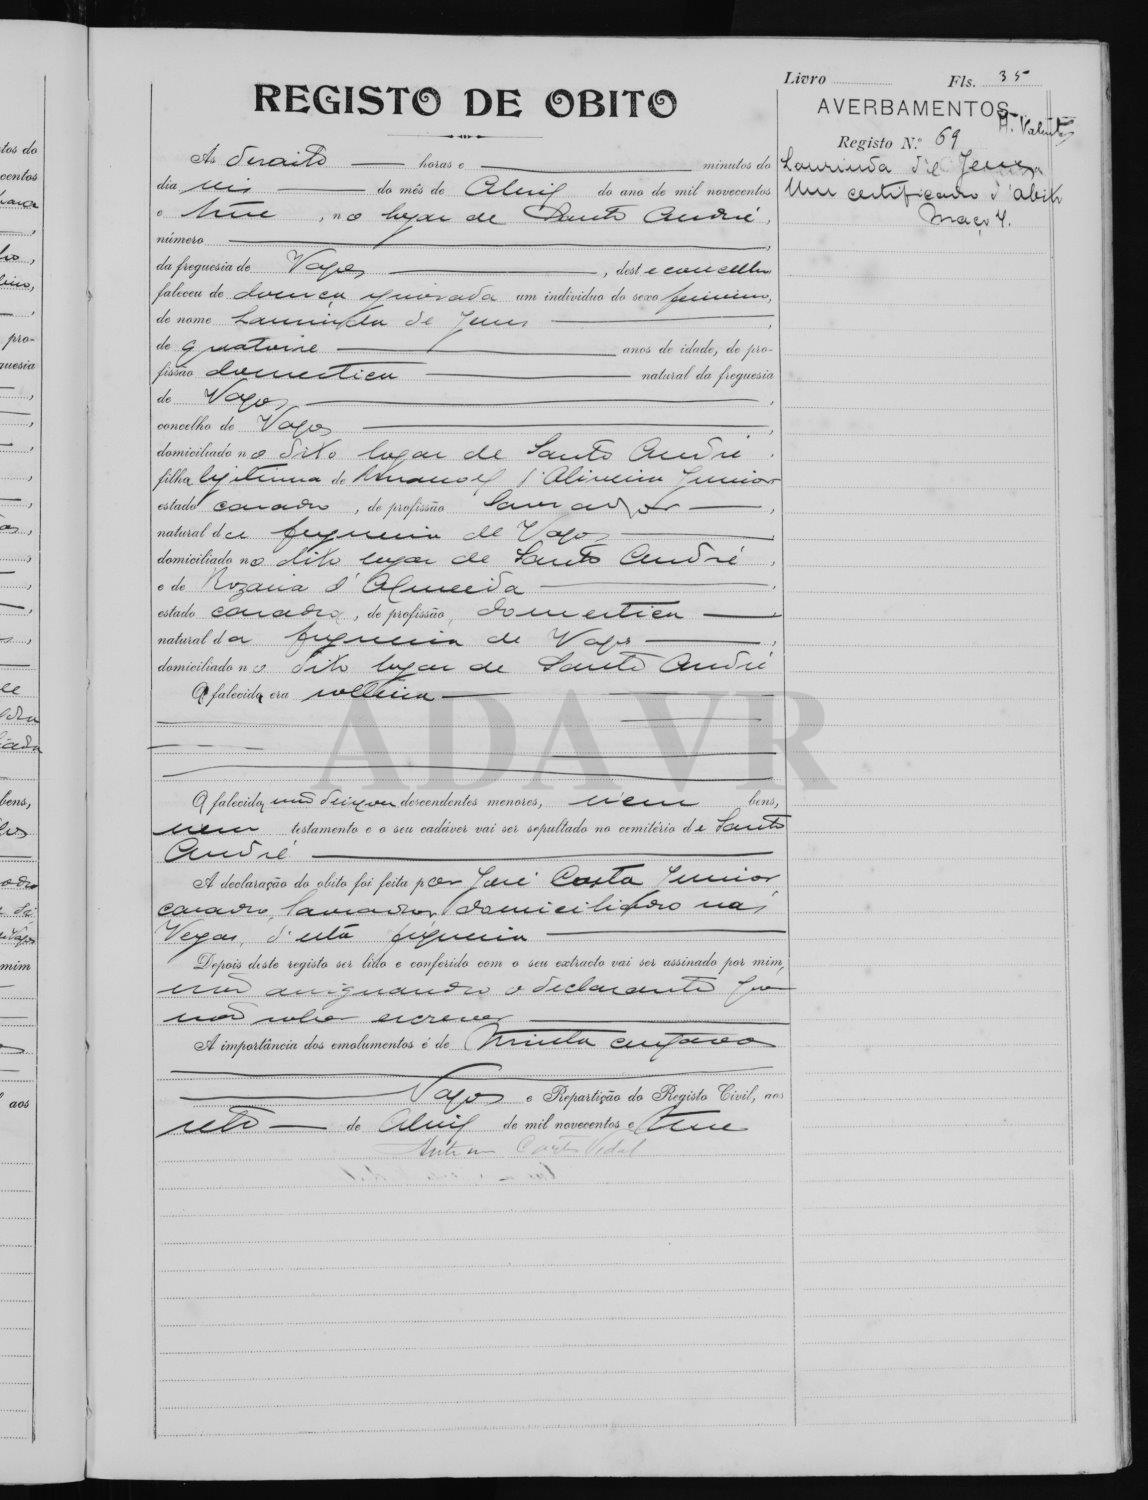 Livro Fls. 35
REGISTO DE OBITO
AVERBAMENTOS
Registo N.º 69
Laurinda de Jesus
Um certificado d'obito
Maço 4.
Às desaito horas e minutos do
dia seis do mês de Abril do ano de mil novecentos
e treze, no lugar de Santo André,
número
da freguesia de Vagos, deste concelho
faleceu de doença ignorada um individuo do sexo feminino,
de nome Laurinda de Jesus
de quatorze anos de idade, de pro-
fissão domestica natural da freguesia
de Vagos,
concelho de Vagos,
domiciliado no dito lugar de Santo André.
filha legitima de Manoel d'Oliveira Junior
estado casado, de profissão lavrador,
natural da freguesia de Vagos
domiciliado no dito lugar de Santo André,
e de Rozaria d'Almeida
estado casada, de profissão, domestica
natural da freguesia de Vagos;
domiciliado no dito lugar de Santo André
A falecida era solteira
A falecida não deixou descendentes menores, nem bens,
nem testamento e o seu cadáver vai ser sepultado no cemitério de Santo
André
A declaração do obito foi feita por José Costa Junior
casado, lavrador, domiciliado nas
Vegas, d'esta freguesia
Depois deste registo ser lido e conferido com o seu extracto vai ser assinado por mim,
não assignando o declarante por
não saber escrever
A importância dos emolumentos é de trinta centavos
Vagos e Repartição do Registo Civil, aos
sete de Abril de mil novecentos e treze
Vidal
ADAVR